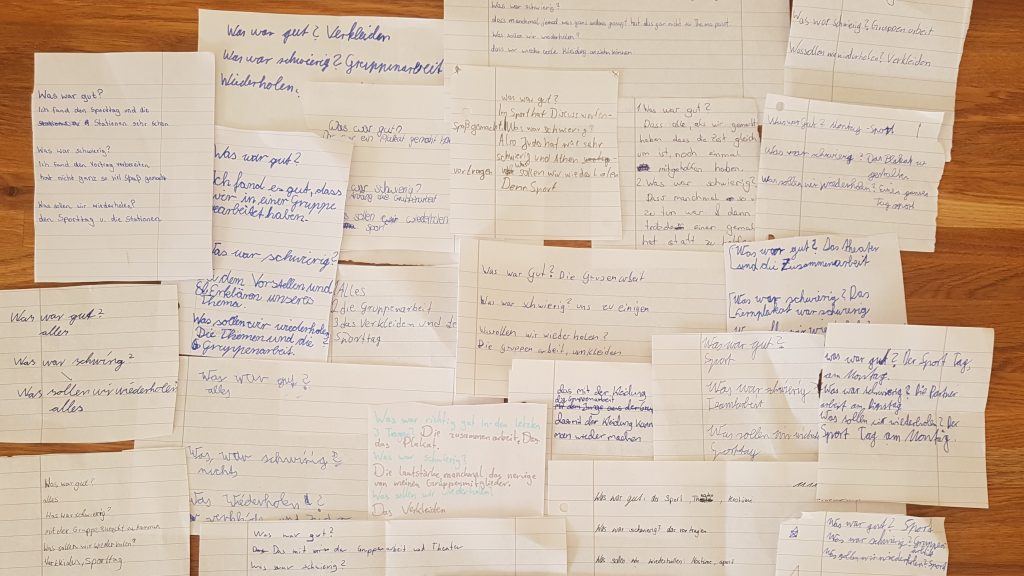 Was war gut? Verkleiden
Was war schwierig? Gruppenarbeit
Wiederholen:
Was war schwierig?
dass manchmal jemand was ganz anderes
das gar nicht zu Thema passt.
Was sollen wir wiederholen?
dass wir wieder coole Kleidung anziehen können
Was war schwierig? Gruppenarbeit
Was sollen wir wiederholen? Verkleiden
Was war gut?
Ich fand den Sporttag und die
Stationen sehr schön
Was war schwierig?
Ich fand den Vortrag vorbereiten
hat nicht ganz so viel Spaß gemacht
Was sollen wir wiederholen?
den Sporttag u. die Stationen
Was war gut?
Ich fand es gut, dass
wir in einer Gruppe
gearbeitet haben.
Was war schwirig?
dem Vorstellen und
Erklären unseres
Thema.
Was, sollen wir wiederholen
Die Themen und die
Gruppenarbeit.
Was war gut?
war schwierig?
wiederholen
Sport
war war gut?
Im Sport hat
Spaß gemacht
Was war schwierig?
hat mir sehr
schwierig und
vortragen
sollen wir wiederholen
Denn Sport
1. Was war gut?
Dass alle, als wir gemerkt
haben dass die Zeit gleich
um ist, noch einmal
mitgehalten haben.
2. Was war schwierig?
Dass manchmal
zu tun war & dann
trotzdem einer
hat statt zu helfen
Was war gut? Montag - Sport
Was war schwierig? Das Plakat zu
gestalten
Was sollen wir wiederholen? Einen ganzen
Tag sport
Was war gut? Das Theater
und die Zusammenarbeit
Was war schwierig? Das
Lernplakat war schwirig
Was war Gut? Die Grupenarbeit
Was war schwierig? uns zu einigen
Was sollen wir wiederholen?
Die Gruppen arbeit, umkleiden
1 Alles
2 die Gruppenarbeit
3 das Verkleiden und der
Sporttag
Was war gut?
alles
Was war schwirig?
Was sollen wir wiederholen
alles
Was war gut?
alles
Was war schwirig?
nichts
Was Wiederholen?
Was war richtig gut in den letzten
3 Tagen? Die zusammenarbeit, Das
das Plakat
Was war schwierig?
Die lautstärke manchmal, das nervige
von meinen Gruppenmitglieder.
Was sollen wir wiederholen?
Das Verkleiden
das mit der Kleidung
die Gruppenarbeit
das mit der Kleidung kann
man wieder machen
Was war gut?
Sport
Was war schwierig?
Teamarbeit
Was sollen wir wiederholen
Sporttag
was war gut? Der Sport Tag,
am Montag.
Was war schwierig? Die Partner
arbeit am Dienstag
Was sollen wir wiederholen? Der
Sport Tag am Montag.
Was war gut?
alles
Was war schwierig?
mit der Gruppe zurecht zu kommen
Was sollen wir wiederholen?
Verkleiden, Sporttag
Was war gut?
Das mit der Gruppenarbeit und Theater
Was war schwierig?
11.11
Was war gut: der Sport, Theater, Kostüme
Was war schwierig? das vortragen
Was sollen wir wiederholen Kostüme, sport
Was war gut? Sport
Was war schwierig? Gruppen
arbeit
Was sollen wir wiederholen? Sport